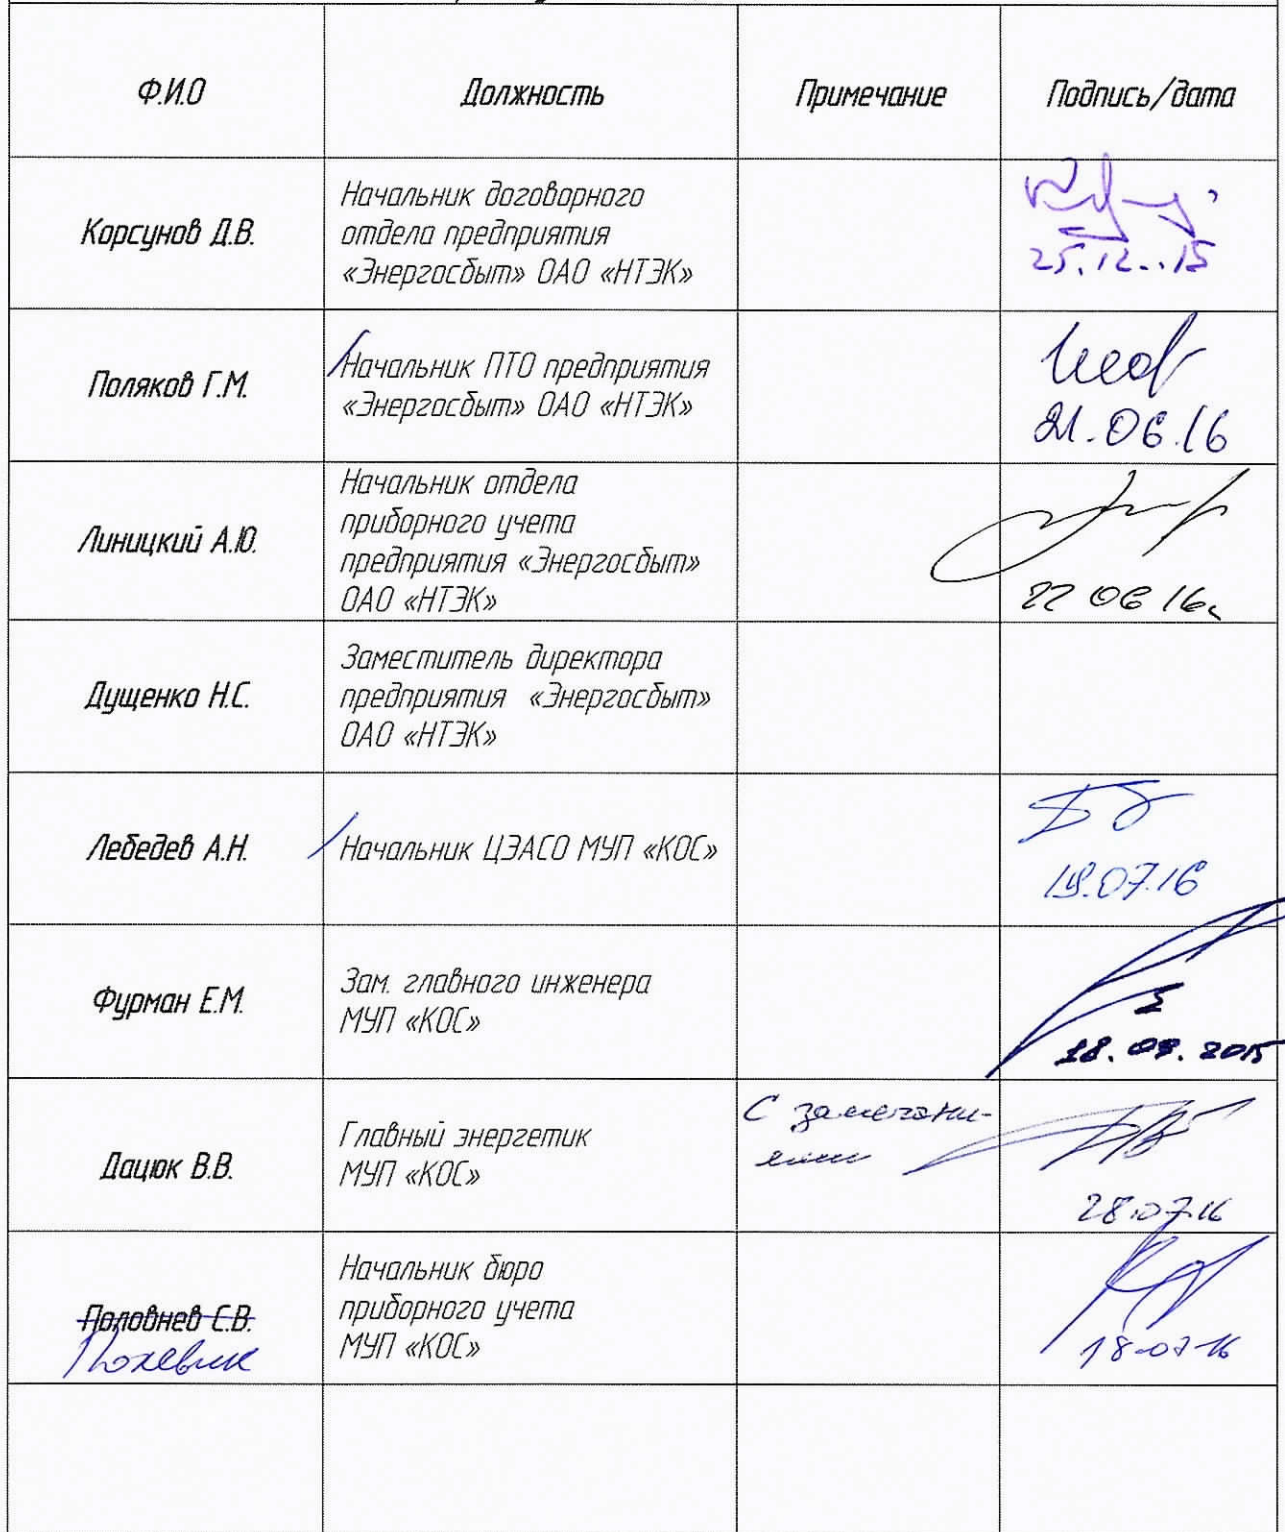 Ф.И.О
Должность
Примечание
Подпись/дата
Корсунов Д.В.
Начальник договорного
отдела предприятия
«Энергосбыт» ОАО «НТЭК»
25.12.15
Поляков Г.М.
Начальник ПТО предприятия
«Энергосбыт» ОАО «НТЭК»
21.06.16
Линицкий А.Ю.
Начальник отдела
приборного учета
предприятия «Энергосбыт»
ОАО «НТЭК»
22 06 16г
Дущенко Н.С.
Заместитель директора
предприятия «Энергосбыт»
ОАО «НТЭК»
Лебедев А.Н.
Начальник ЦЭАСО МУП «КОС»
Фурман Е.М.
Зам. главного инженера
МУП «КОС»
Дацюк В.В.
Главный энергетик
МУП «КОС»
С замечани-
ями
28.07.16
Половнев С.В.
Начальник бюро
приборного учета
МУП «КОС»
18.07.16